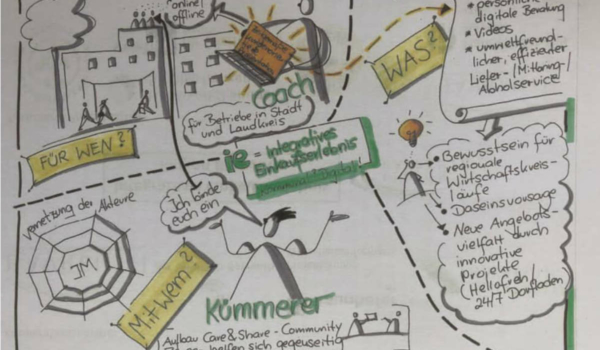 online/
offline
Coach
für Betriebe in Stadt
und Landkreis
FÜR WEN?
WAS?
* persönliche
digitale Beratung
* Videos
* umweltfreund-
licher, effizienter
Liefer-/Mitbring-/
Abholservice
ie = Integratives
Einkaufserlebnis
Ich binde
euch ein
Vernetzung der Akteure
IM
Mit Wem?
Kümmerer
Aufbau Care & Share - Community
helfen sich gegenseitig
• Bewusstsein für
regionale
Wirtschaftskreis-
läufe
• Daseinsvorsorge
• Neue Angebots-
vielfalt durch
innovative
Projekte
(Hellofresh/
24/7 Dorfladen)